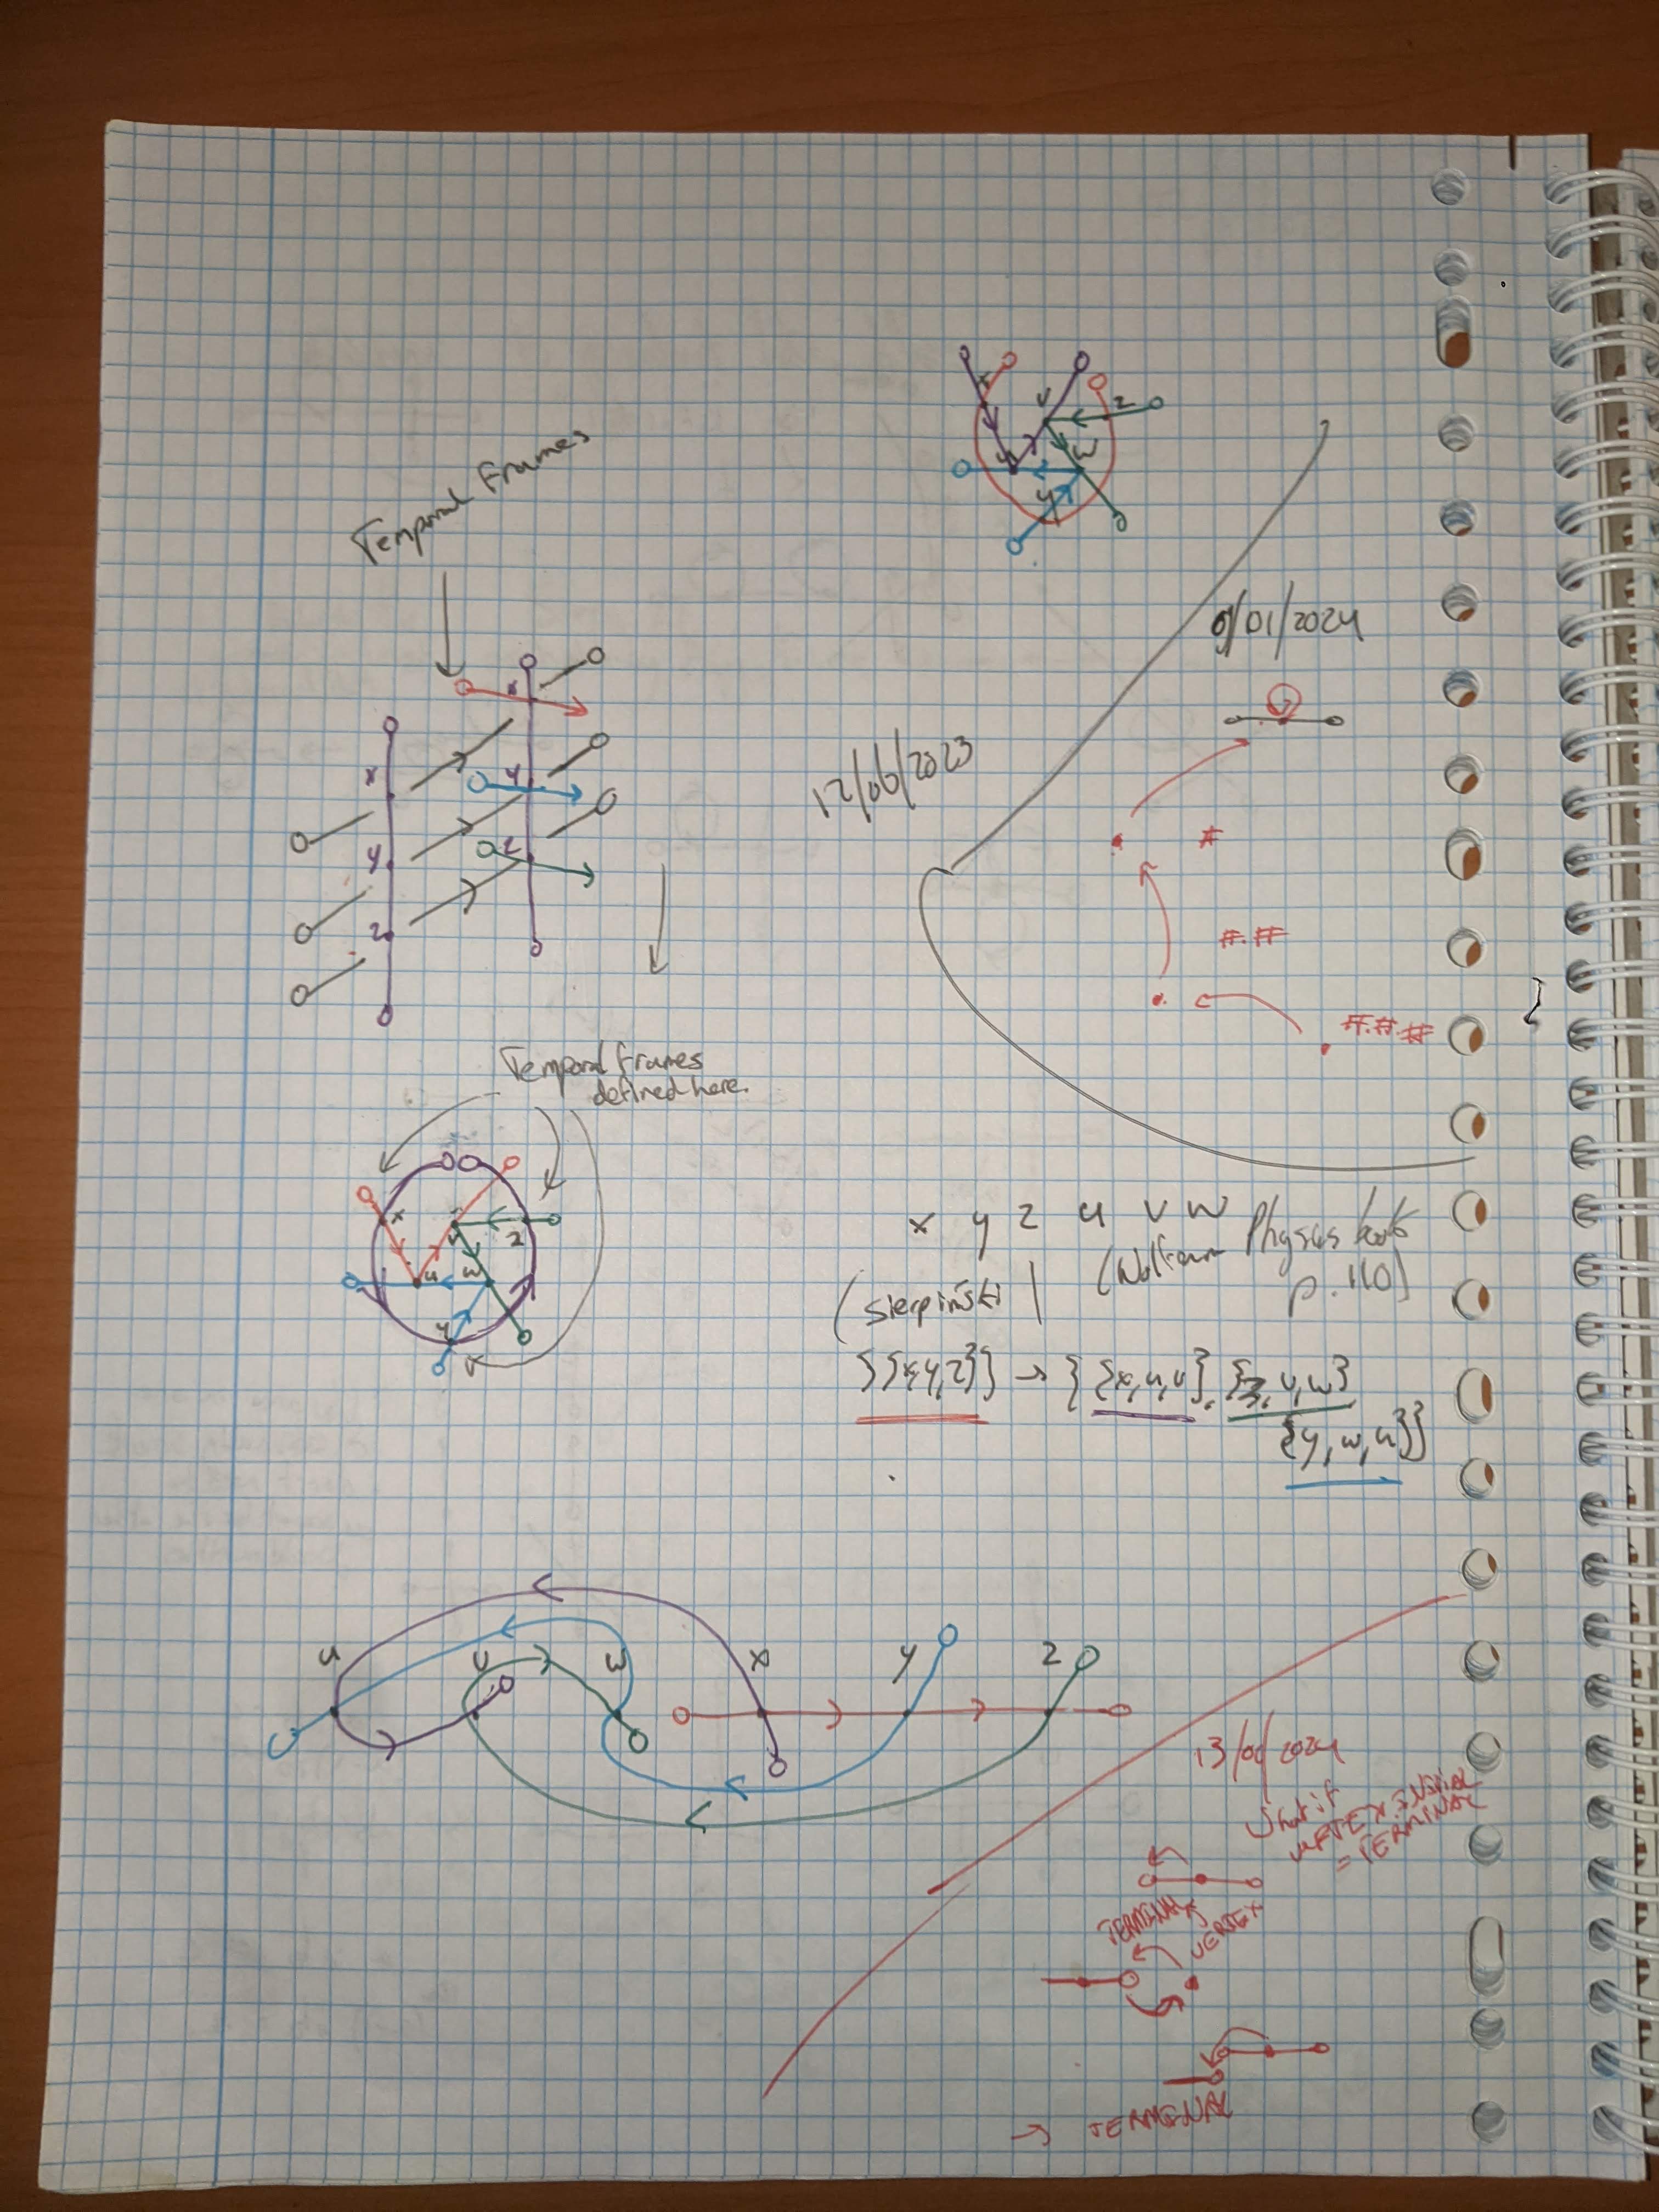 x
v
z
u
w
y
Temporal Frames
0/01/2024
x
y
z
x
y
z
12/06/2023
#
#.##
#.#.#
Temporal frames
defined here.
x
v
z
u
w
y
x y z u v w
(Sierpiński | (Wolfram Physics book
p. 110)
{{x,y,z}} → {{x,u,v}, {z,v,w},
{y,w,u}}
u v w x y z
What if
VERTEX.INITIAL
= TERMINAL
TERMINAL
VERTEX
→ TERMINAL